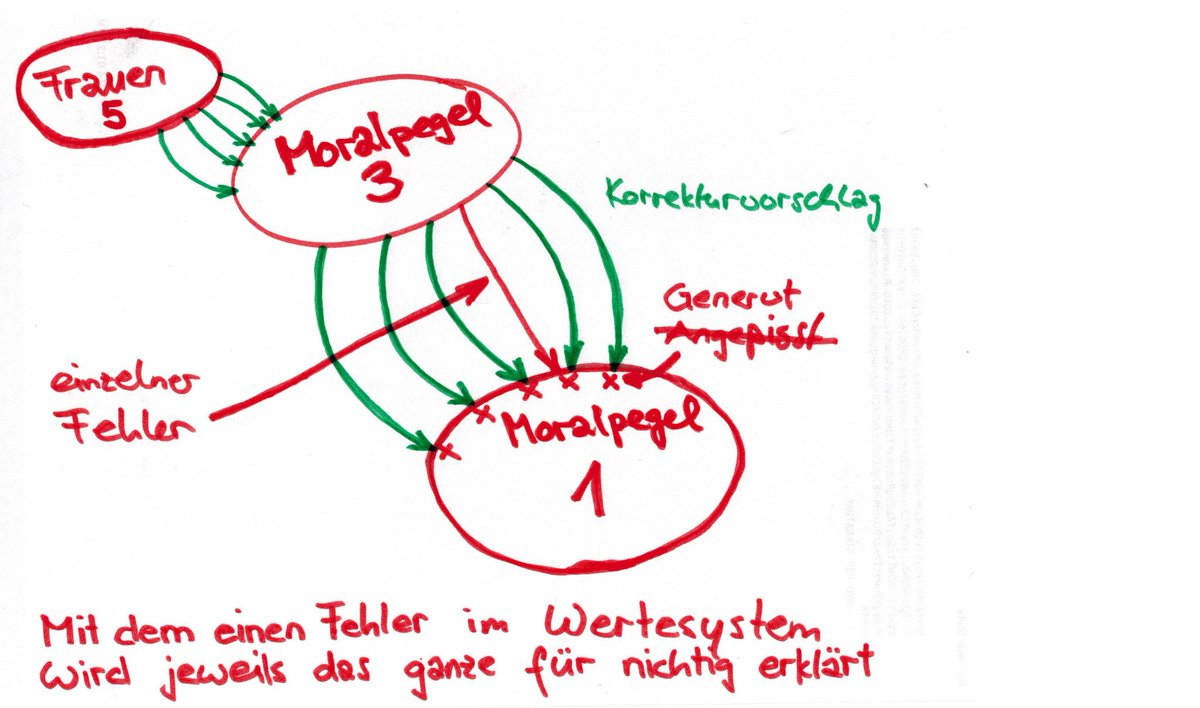 Frauen
5
Moralpegel
3
Korrekturvorschlag
Genervt
Angepisst
einzelner
Fehler
Moralpegel
1
Mit dem einen Fehler im Wertesystem
wird jeweils das ganze für nichtig erklärt